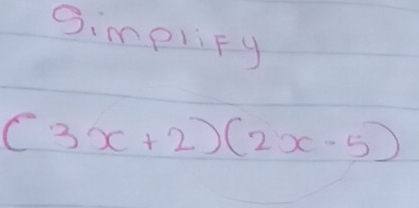 Simplify
(3x+2)(2x-5)